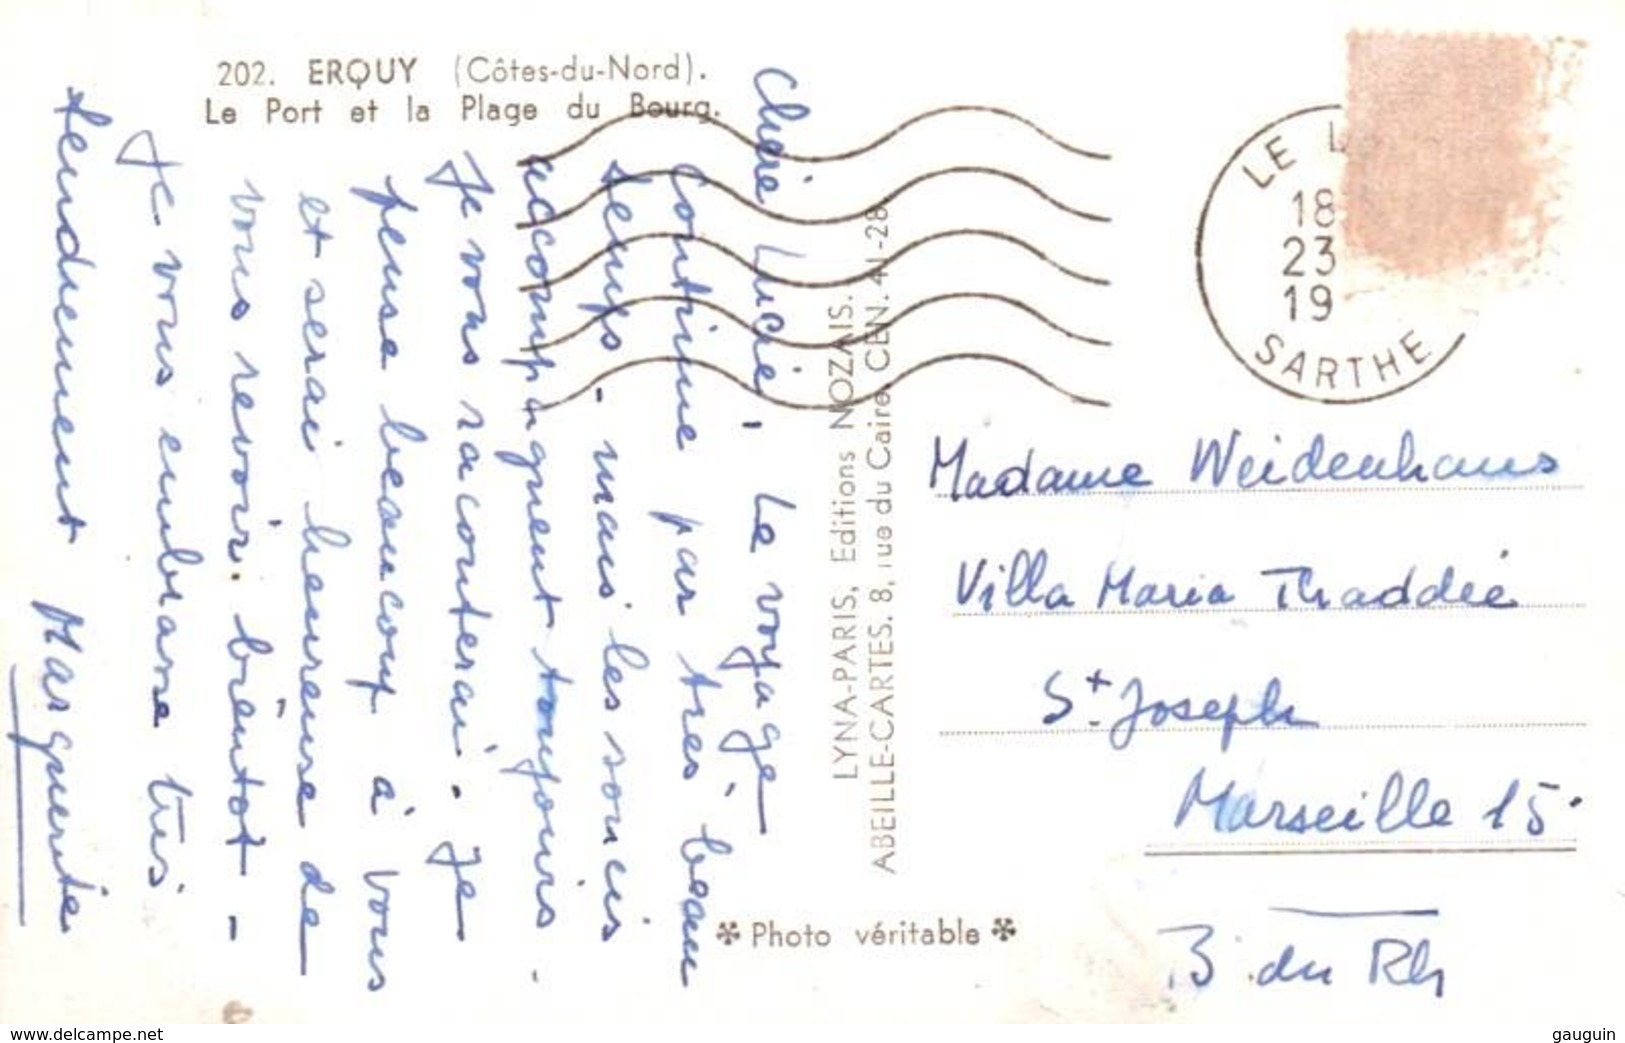 202. ERQUY (Côtes-du-Nord).
Le Port et la Plage du Bourg.
Chérie Lucie, Le voyage
continue par très beau
temps - mais les soucis
accompagnent toujours.
Je vous raconterai. Je
pense beaucoup à vous
et serai heureuse de
vous revoir. bientôt -
Je vous embrasse très
tendrement Marguerite
LYNA-PARIS, Editions MOZAIS.
ABEILLE-CARTES. 8, rue du Caire CEN. 41-28
LE
18
23
19
SARTHE
Madame Weidenhaus
Villa Maria Thaddée
St. Joseph
Marseille 15.
B. du Rh
Photo véritable
www.delcampe.net
gauguin